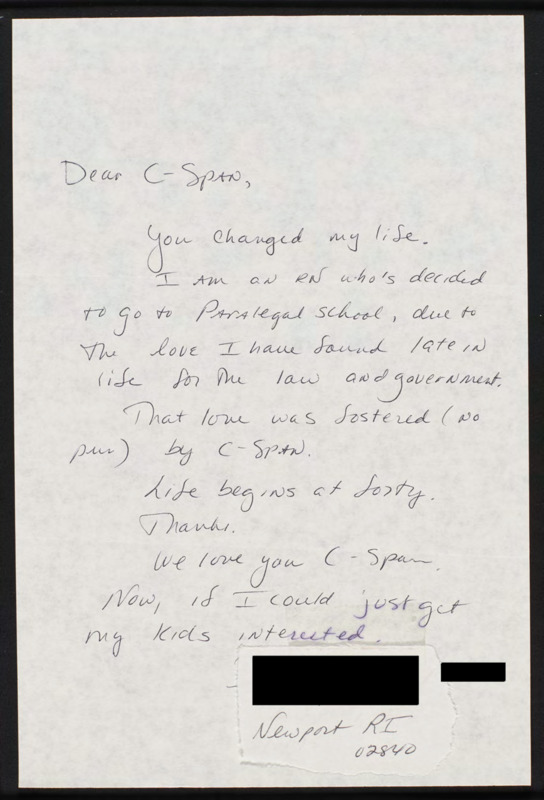 Dear C-Span,
You changed my life.
I am an RN who's decided
to go to Paralegal school, due to
the love I have found late in
life for the law and government.
That love was fostered (no
pun) by C-Span.
Life begins at forty.
Thanks.
We love you C-Span.
Now, if I could just get
my kids interested.
Newport RI
02840